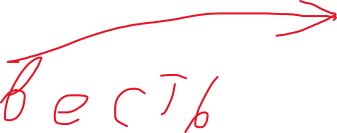 весть